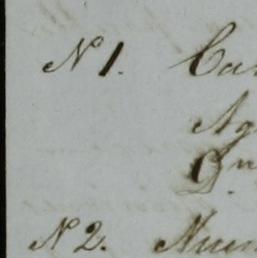 N 1. Ca
Ag
N 2. Num